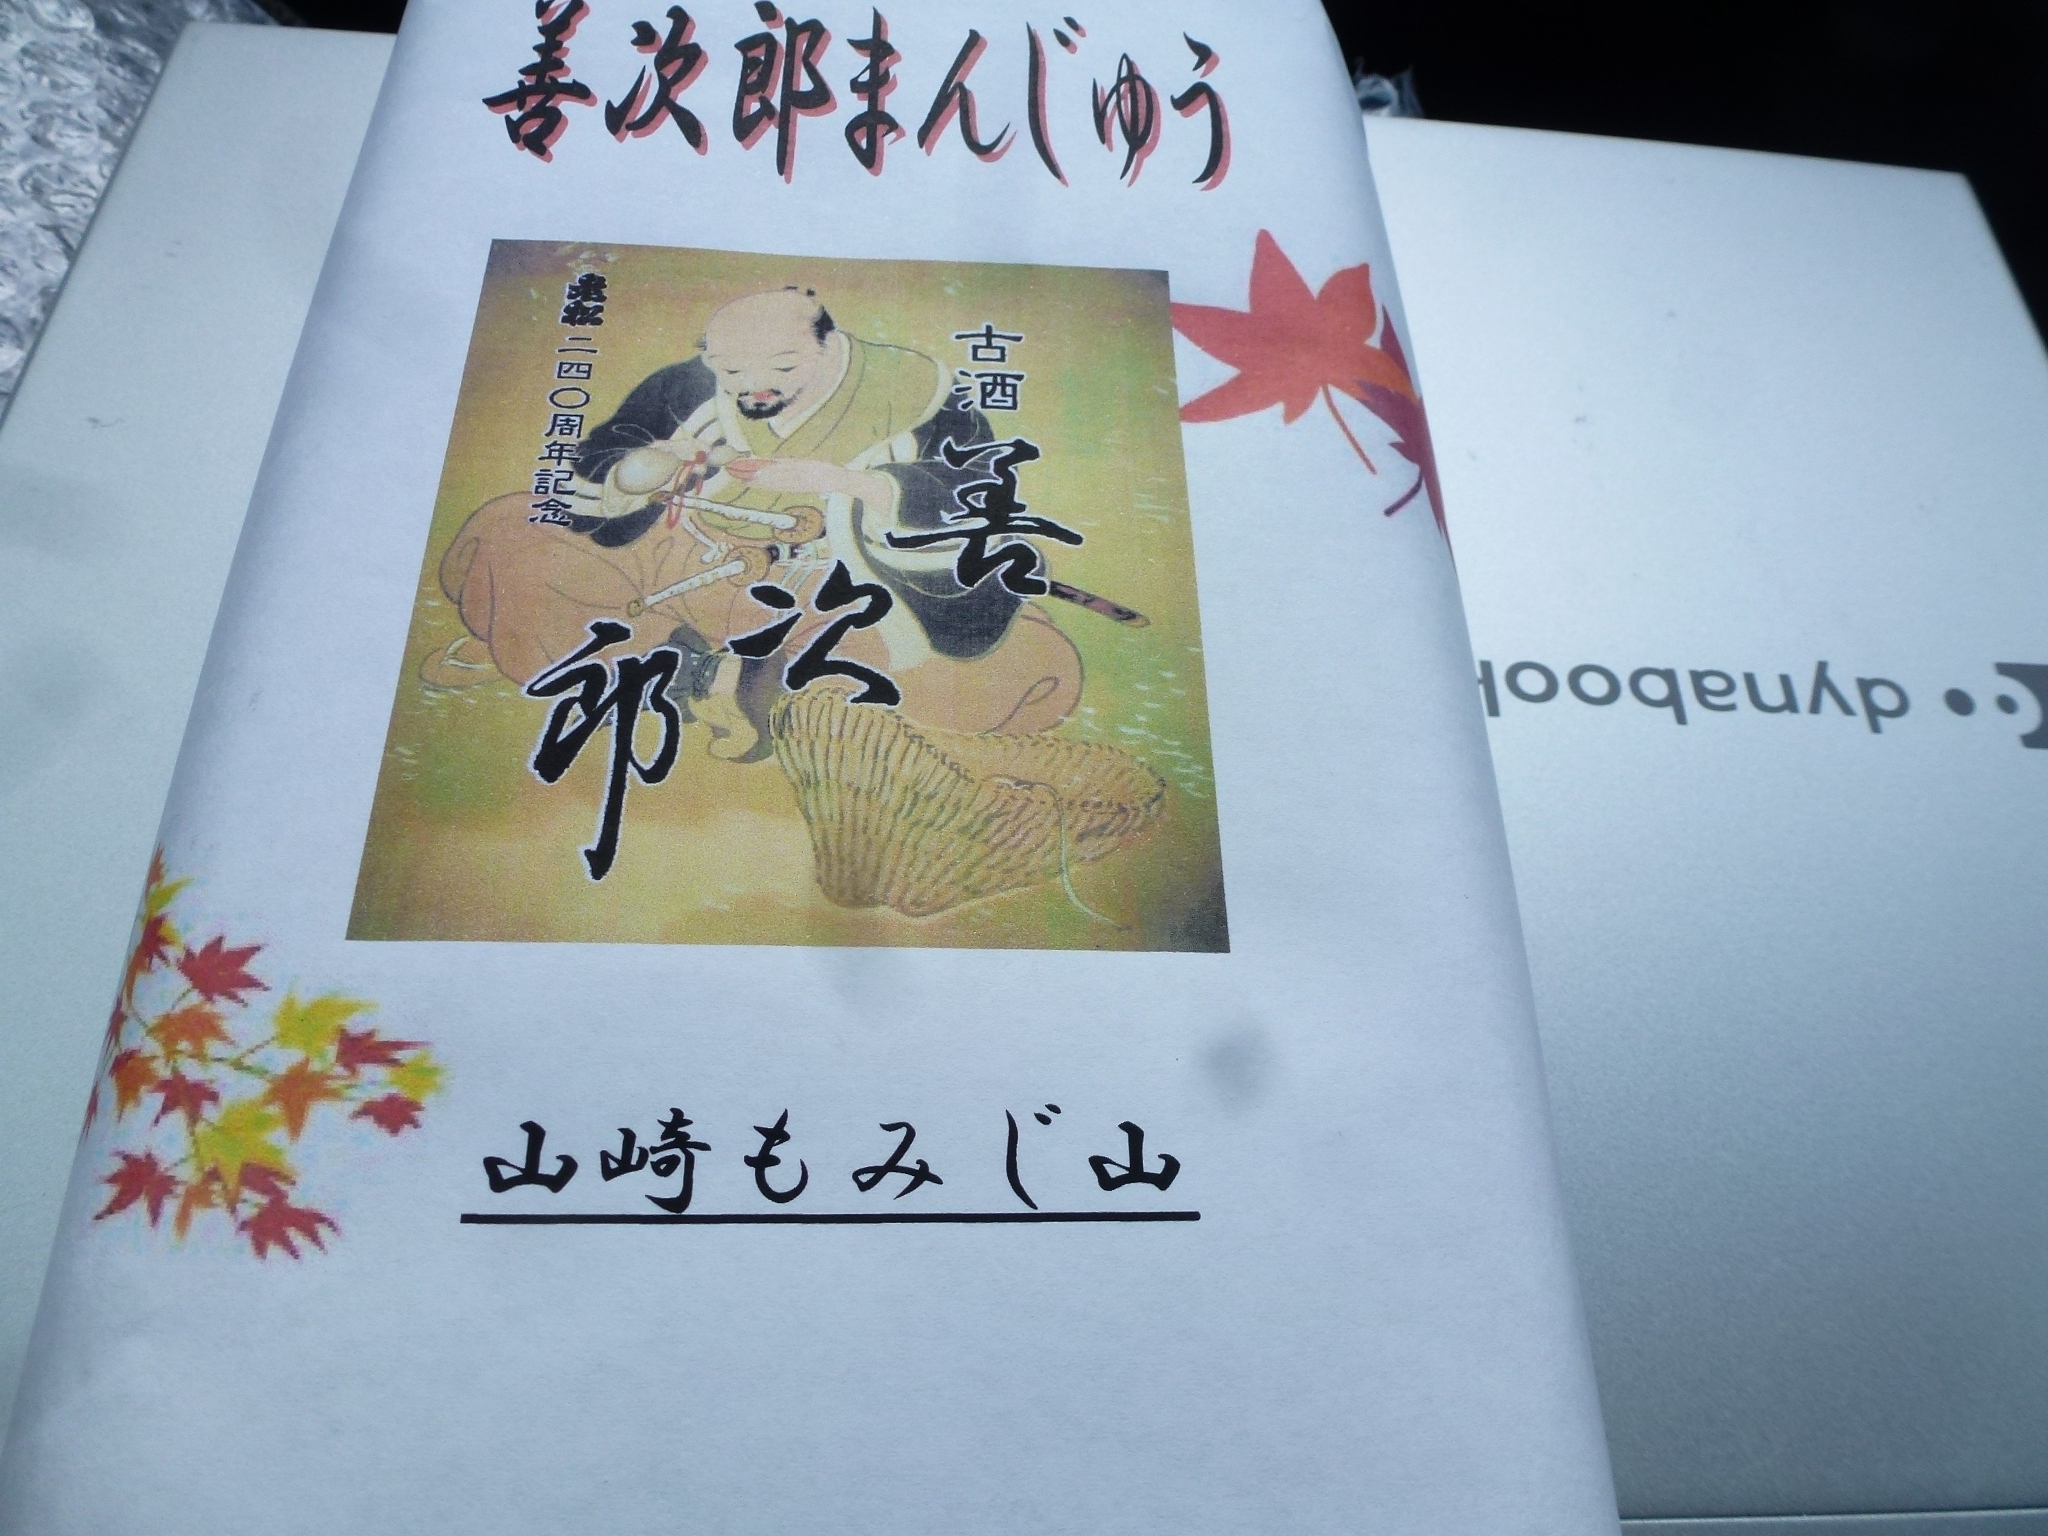 善次郎まんじゅう
古酒
善次郎
二四〇周年記念
山崎もみじ山
dynabook